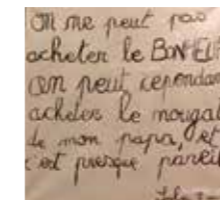 On me peut pas
acheter le BONHEUR
on peut cependant
acheter le nougat
de mon papa, et
c'est presque pareil